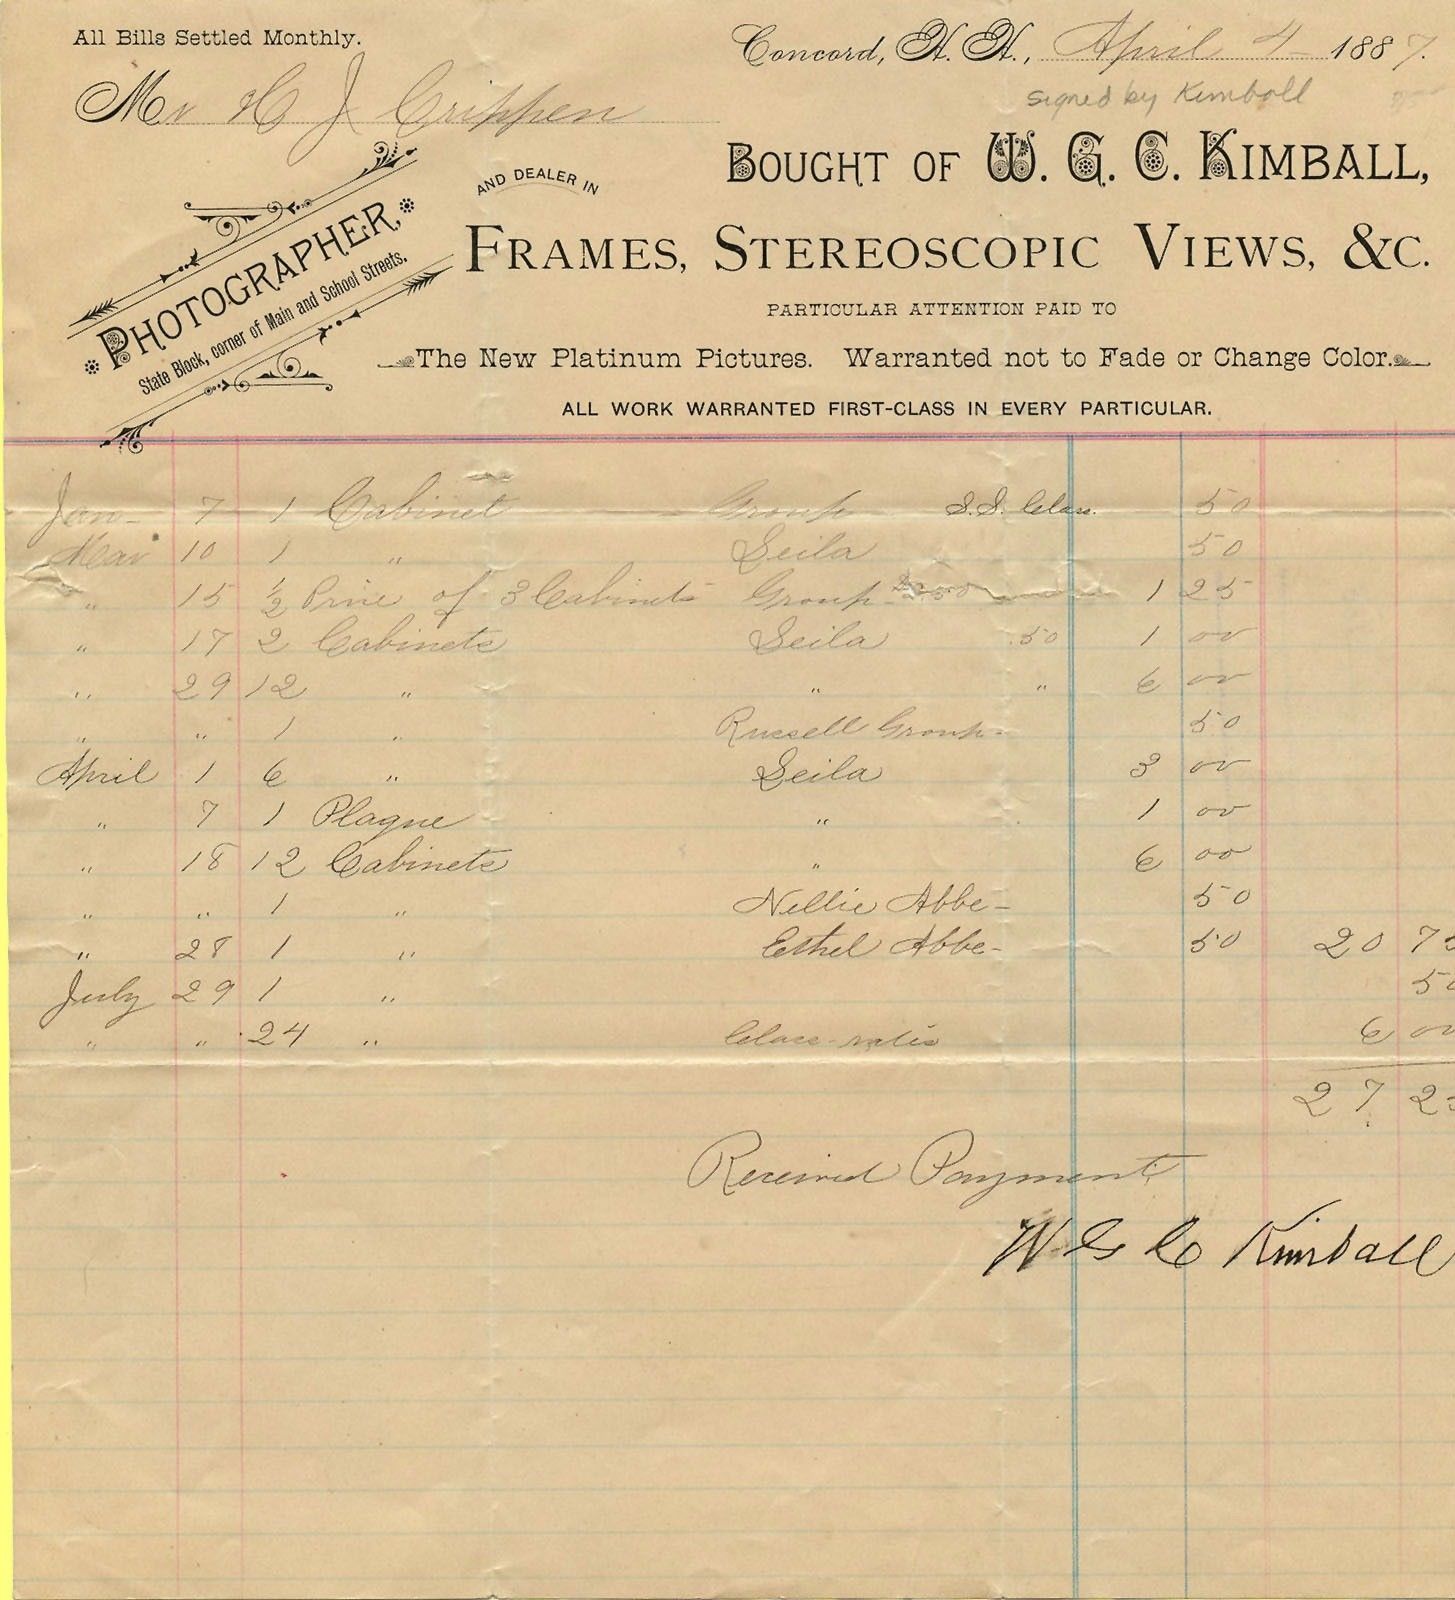 All Bills Settled Monthly.
Concord, N. H., April 4 1887.
signed by Kimball
Mr H J Crippen
BOUGHT OF W. G. C. KIMBALL,
PHOTOGRAPHER,
State Block, corner of Main and School Streets.
AND DEALER IN
FRAMES, STEREOSCOPIC VIEWS, &C.
PARTICULAR ATTENTION PAID TO
The New Platinum Pictures. Warranted not to Fade or Change Color.
ALL WORK WARRANTED FIRST-CLASS IN EVERY PARTICULAR.
Jan- 7 1 Cabinet - Group S.S. Class. 50
Mar 10 1 " Leila 50
" 15 1/2 Price of 3 Cabinets Group 1 25
" 17 2 Cabinets Leila .50 1 00
" 29 12 " " " 6 00
" " 1 " Russell Group- 50
April 1 6 " Leila 3 00
" 7 1 Plaque " 1 00
" 18 12 Cabinets " 6 00
" " 1 " Nellie Abbe- 50
" 28 1 " Ethel Abbe- 50 20 75
July 29 1 " 50
" " 24 " Class-rates 6 00
27 25
Received Payment
W G C Kimball